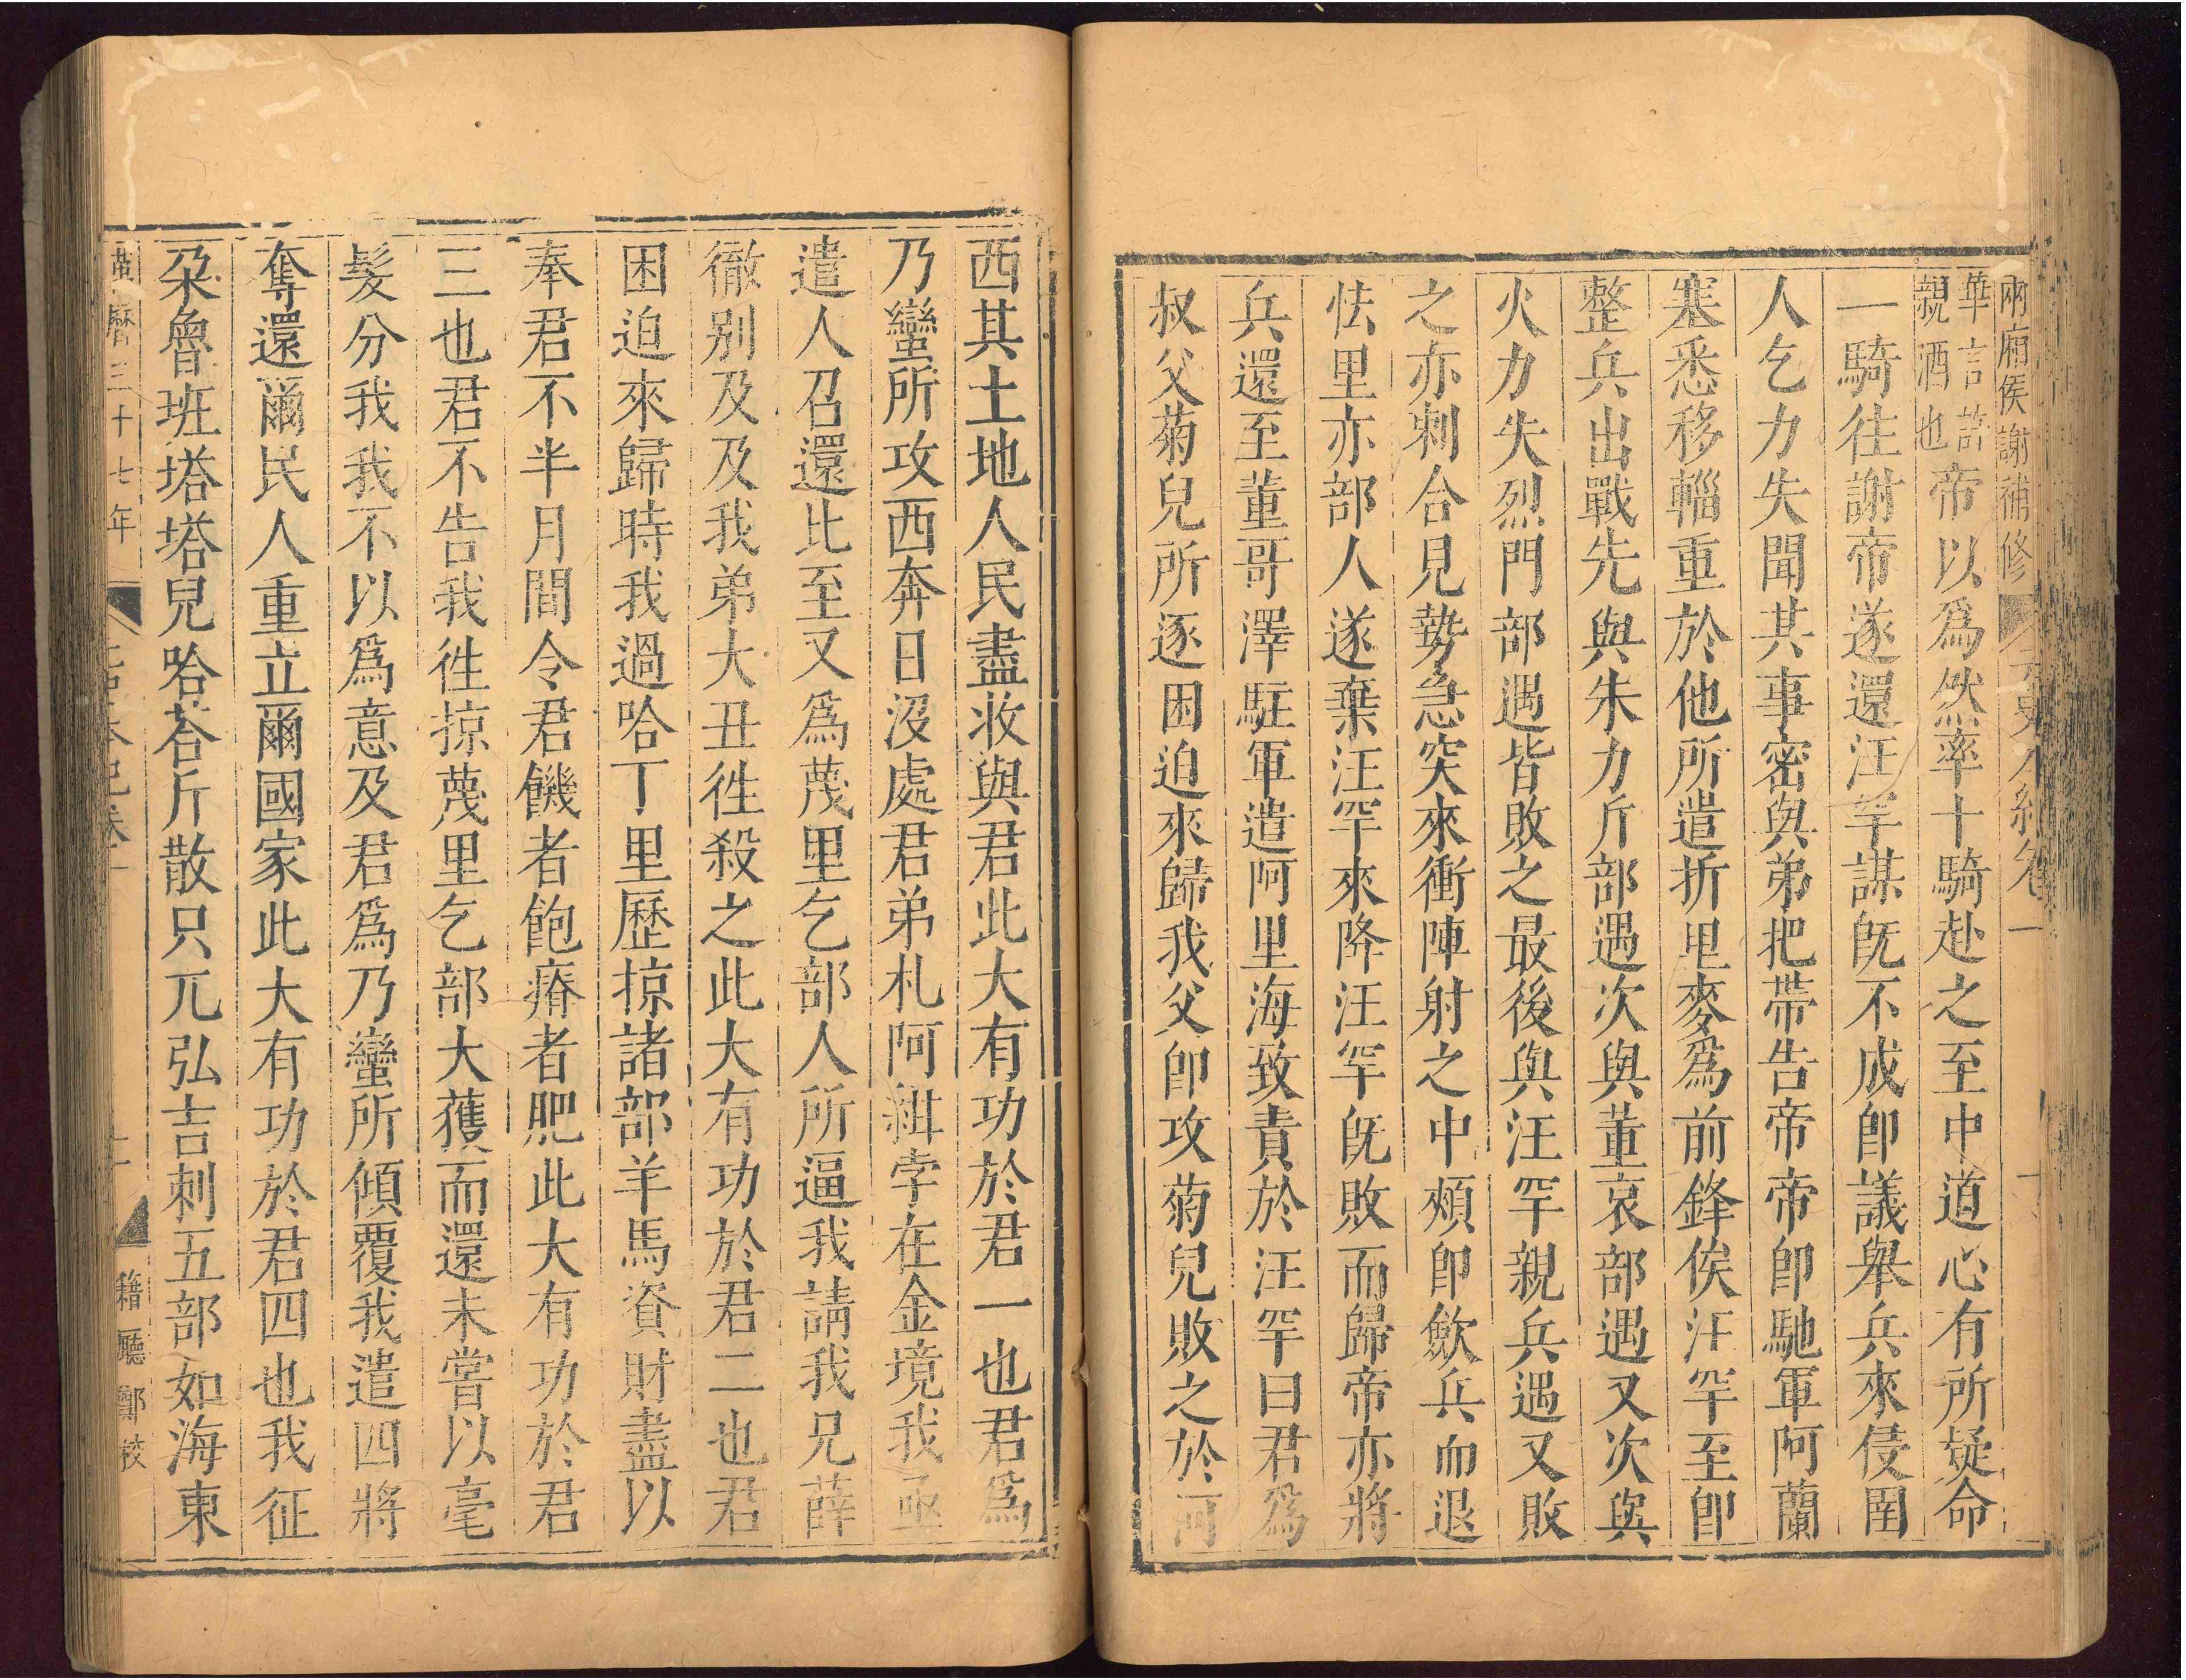 兩廂侯謝補修 元史本紀卷一 十
華言許
親酒也
帝以爲然率十騎赴之至中道心有所疑命
一騎往謝帝遂還汪罕謀旣不成卽議舉兵來侵圉
人乞力失聞其事密與弟把帶告帝帝卽馳軍阿蘭
塞悉移輜重於他所遣折里麥爲前鋒俟汪罕至卽
整兵出戰先與朱力斤部遇次與董哀部遇又次與
火力失烈門部遇皆敗之最後與汪罕親兵遇又敗
之亦剌合見勢急突來衝陣射之中頰卽斂兵而退
怯里亦部人遂棄汪罕來降汪罕旣敗而歸帝亦將
兵還至董哥澤駐軍遣阿里海致責於汪罕曰君爲
叔父菊兒所逐困迫來歸我父卽攻菊兒敗之於河
西其土地人民盡收與君此大有功於君一也君爲
乃蠻所攻西奔日沒處君弟札阿紺孛在金境我亟
遣人召還比至又爲蔑里乞部人所逼我請我兄薛
徹别及及我弟大丑往殺之此大有功於君二也君
困迫來歸時我過哈丁里歷掠諸部羊馬資財盡以
奉君不半月間令君饑者飽瘠者肥此大有功於君
三也君不告我往掠蔑里乞部大獲而還未嘗以毫
髮分我我不以爲意及君爲乃蠻所傾覆我遣四將
奪還爾民人重立爾國家此大有功於君四也我征
朵魯班塔塔兒哈荅斤散只兀弘吉剌五部如海東
萬曆三十七年 元史本紀卷一 十一 籍廳鄭校